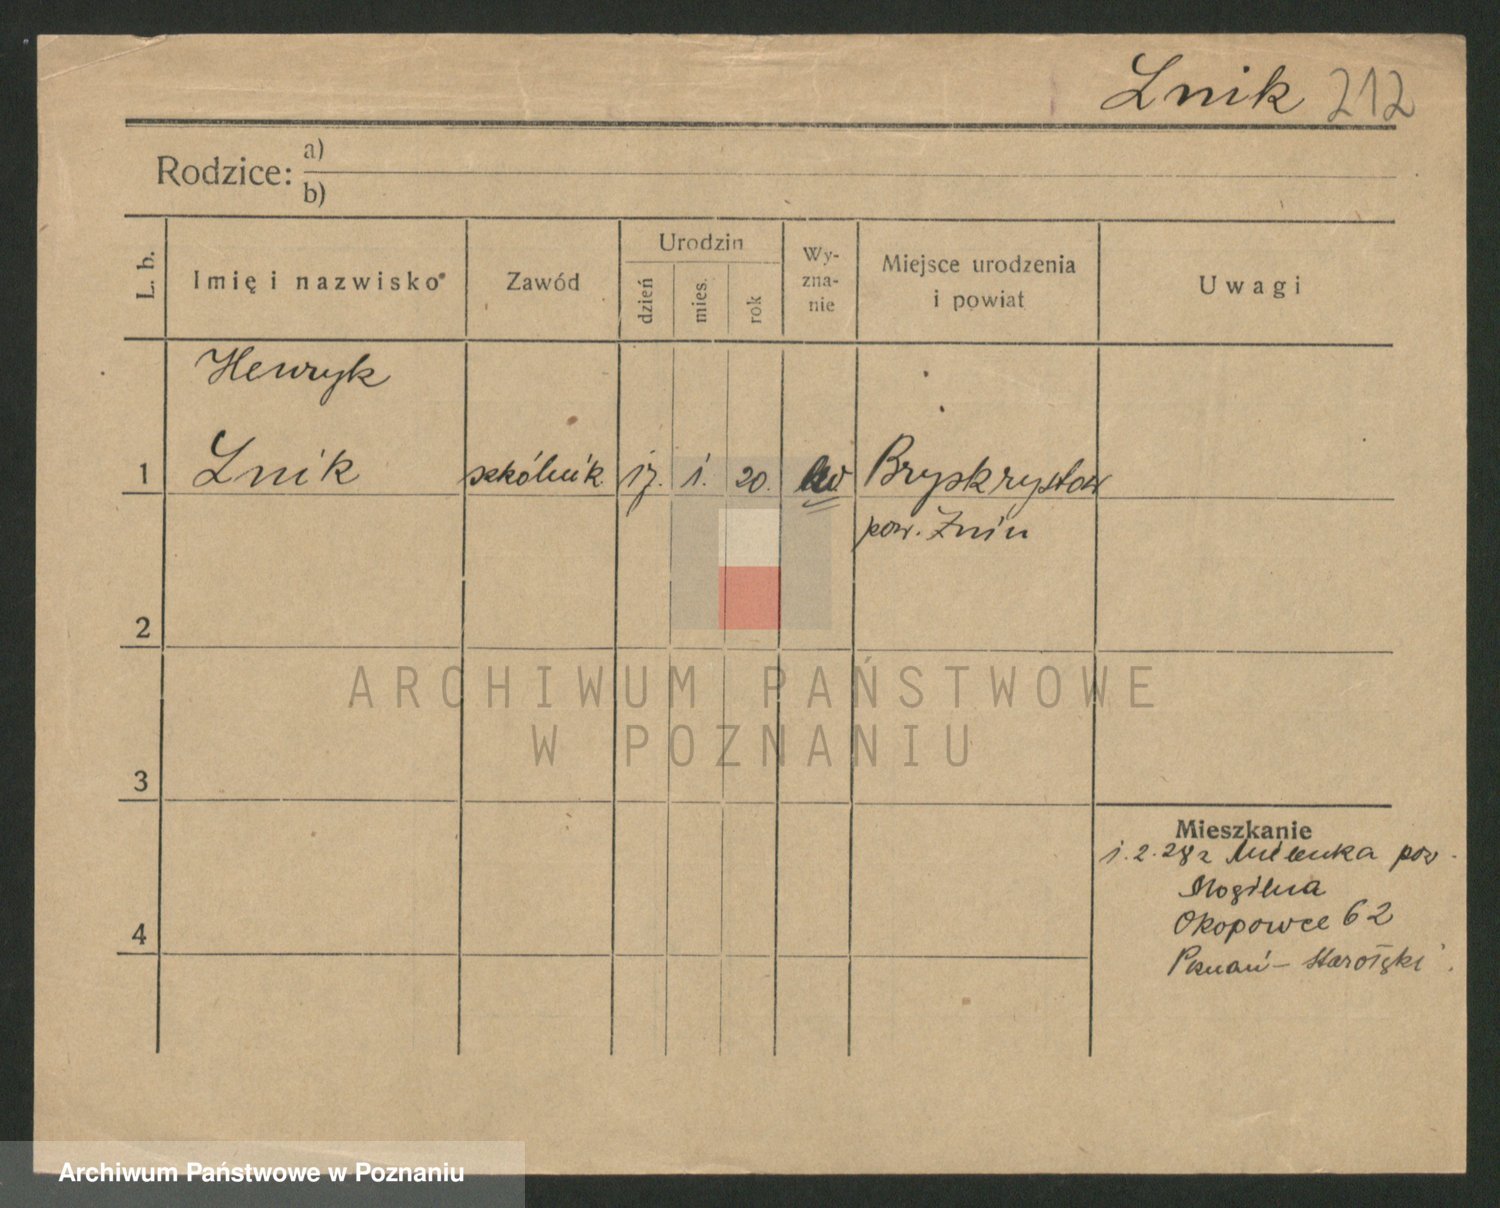 Lnik 212
Rodzice: a)
b)
L. b.
Imię i nazwisko
Zawód
Urodzin
dzień
mies.
rok
Wy-
zna-
nie
Miejsce urodzenia
i powiat
Uwagi
Henryk
1 Lnik szkólnik 17. 1. 20. Bryskrystow
pow. Żnin
2
3
4
Mieszkanie
1.2.28 z pow.
Mogilna
Okopowce 62
Poznań - Starołęki
ARCHIWUM PAŃSTWOWE
W POZNANIU
Archiwum Państwowe w Poznaniu